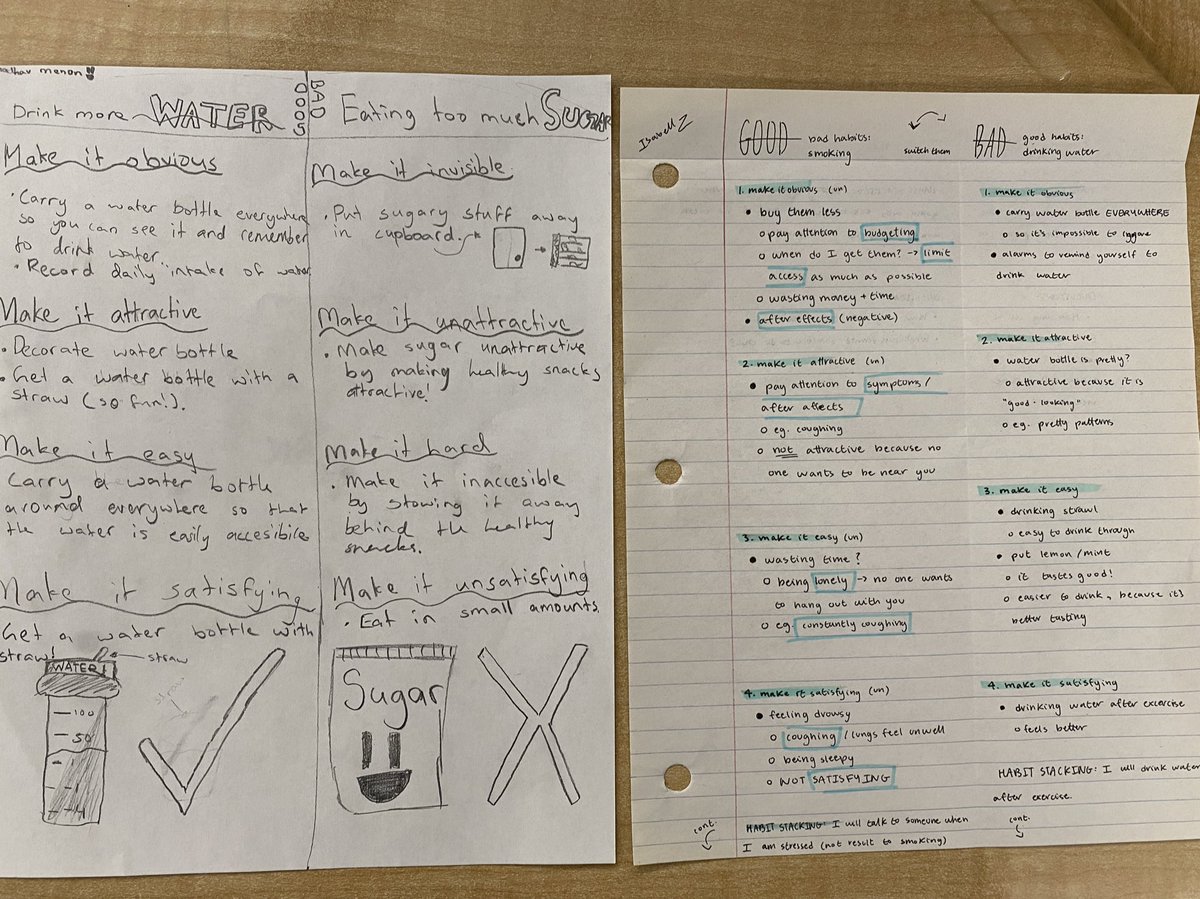 menon!!
Drink more WATER
GOOD
Make it obvious
• Carry a water bottle everywhere
so you can see it and remember
to drink water.
• Record daily intake of water
Make it attractive
• Decorate water bottle
• Get a water bottle with a
straw (so fun!).
Make it easy
Carry a water bottle
around everywhere so that
the water is easily accesibile
Make it satisfying
Get a water bottle with
straw!
straw
WATER!
100
50
BAD
Eating too much SUGAR
Make it invisible
• Put sugary stuff away
in cupboard.
Make it unattractive
• Make sugar unattractive
by making healthy snacks
attractive!
Make it hard
• Make it inaccesible
by stowing it away
behind the healthy
snacks.
Make it unsatisfying
• Eat in small amounts.
Sugar
Isabell Z
GOOD bad habits:
smoking
switch them
1. make it obvious (un)
• buy them less
o pay attention to budgeting
o when do I get them? → limit
access as much as possible
o wasting money + time
• after effects (negative)
2. make it attractive (un)
• pay attention to symptoms/
after affects
o eg. coughing
o not attractive because no
one wants to be near you
3. make it easy (un)
• wasting time?
o being lonely → no one wants
to hang out with you
o eg. constantly coughing
4. make it satisfying (un)
• feeling drowsy
o coughing / lungs feel unwell
o being sleepy
o NOT SATISFYING
HABIT STACKING: I will talk to someone when
I am stressed (not result to smoking)
cont.
BAD good habits:
drinking water
1. make it obvious
• carry water bottle EVERYWHERE
o so it's impossible to
• alarms to remind yourself to
drink water
2. make it attractive
• water bottle is pretty?
o attractive because it is
"good-looking"
o eg. pretty patterns
3. make it easy
• drinking straw!
o easy to drink through
• put lemon/mint
o it tastes good!
o easier to drink, because its
better tasting
4. make it satisfying
• drinking water after excercise
o feels better
HABIT STACKING: I will drink water
after exercise.
cont.